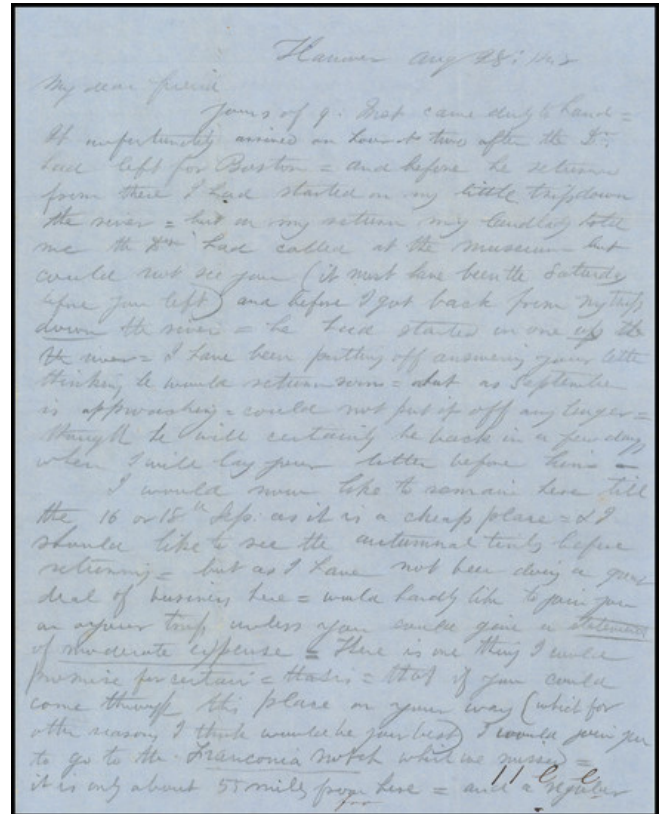 Hanover Aug 28:
My dear friend
Yours of 9. Inst came duly to hand =
It unfortunately arrived an hour or two after the Dr.
had left for Boston = and before he return
from there I had started on my little trip down
the river = but on my return my landlady told
me the Dr. had called at the museum but
could not see you (it must have been the Saturday
before you left) and before I got back from my trip
down the river = he had started on one up the
the river = I have been putting off answering your letter
thinking he would return soon = but as September
is approaching = could not put it off any longer =
though he will certainly be back in a few days
when I will lay your letter before him =
I would now like to remain here till
the 16 or 18th Sep. as it is a cheap place = & I
should like to see the autumnal tints before
returning = but as I have not been doing a great
deal of business here = would hardly like to join you
on your trip unless you could give a statement
of moderate expense = There is one thing I would
promise for certain = that is = that if you could
come through this place on your way (which for
other reasons I think would be your best) I would join you
to go to the Franconia notch which we missed =
it is only about 55 miles from here = and a regular